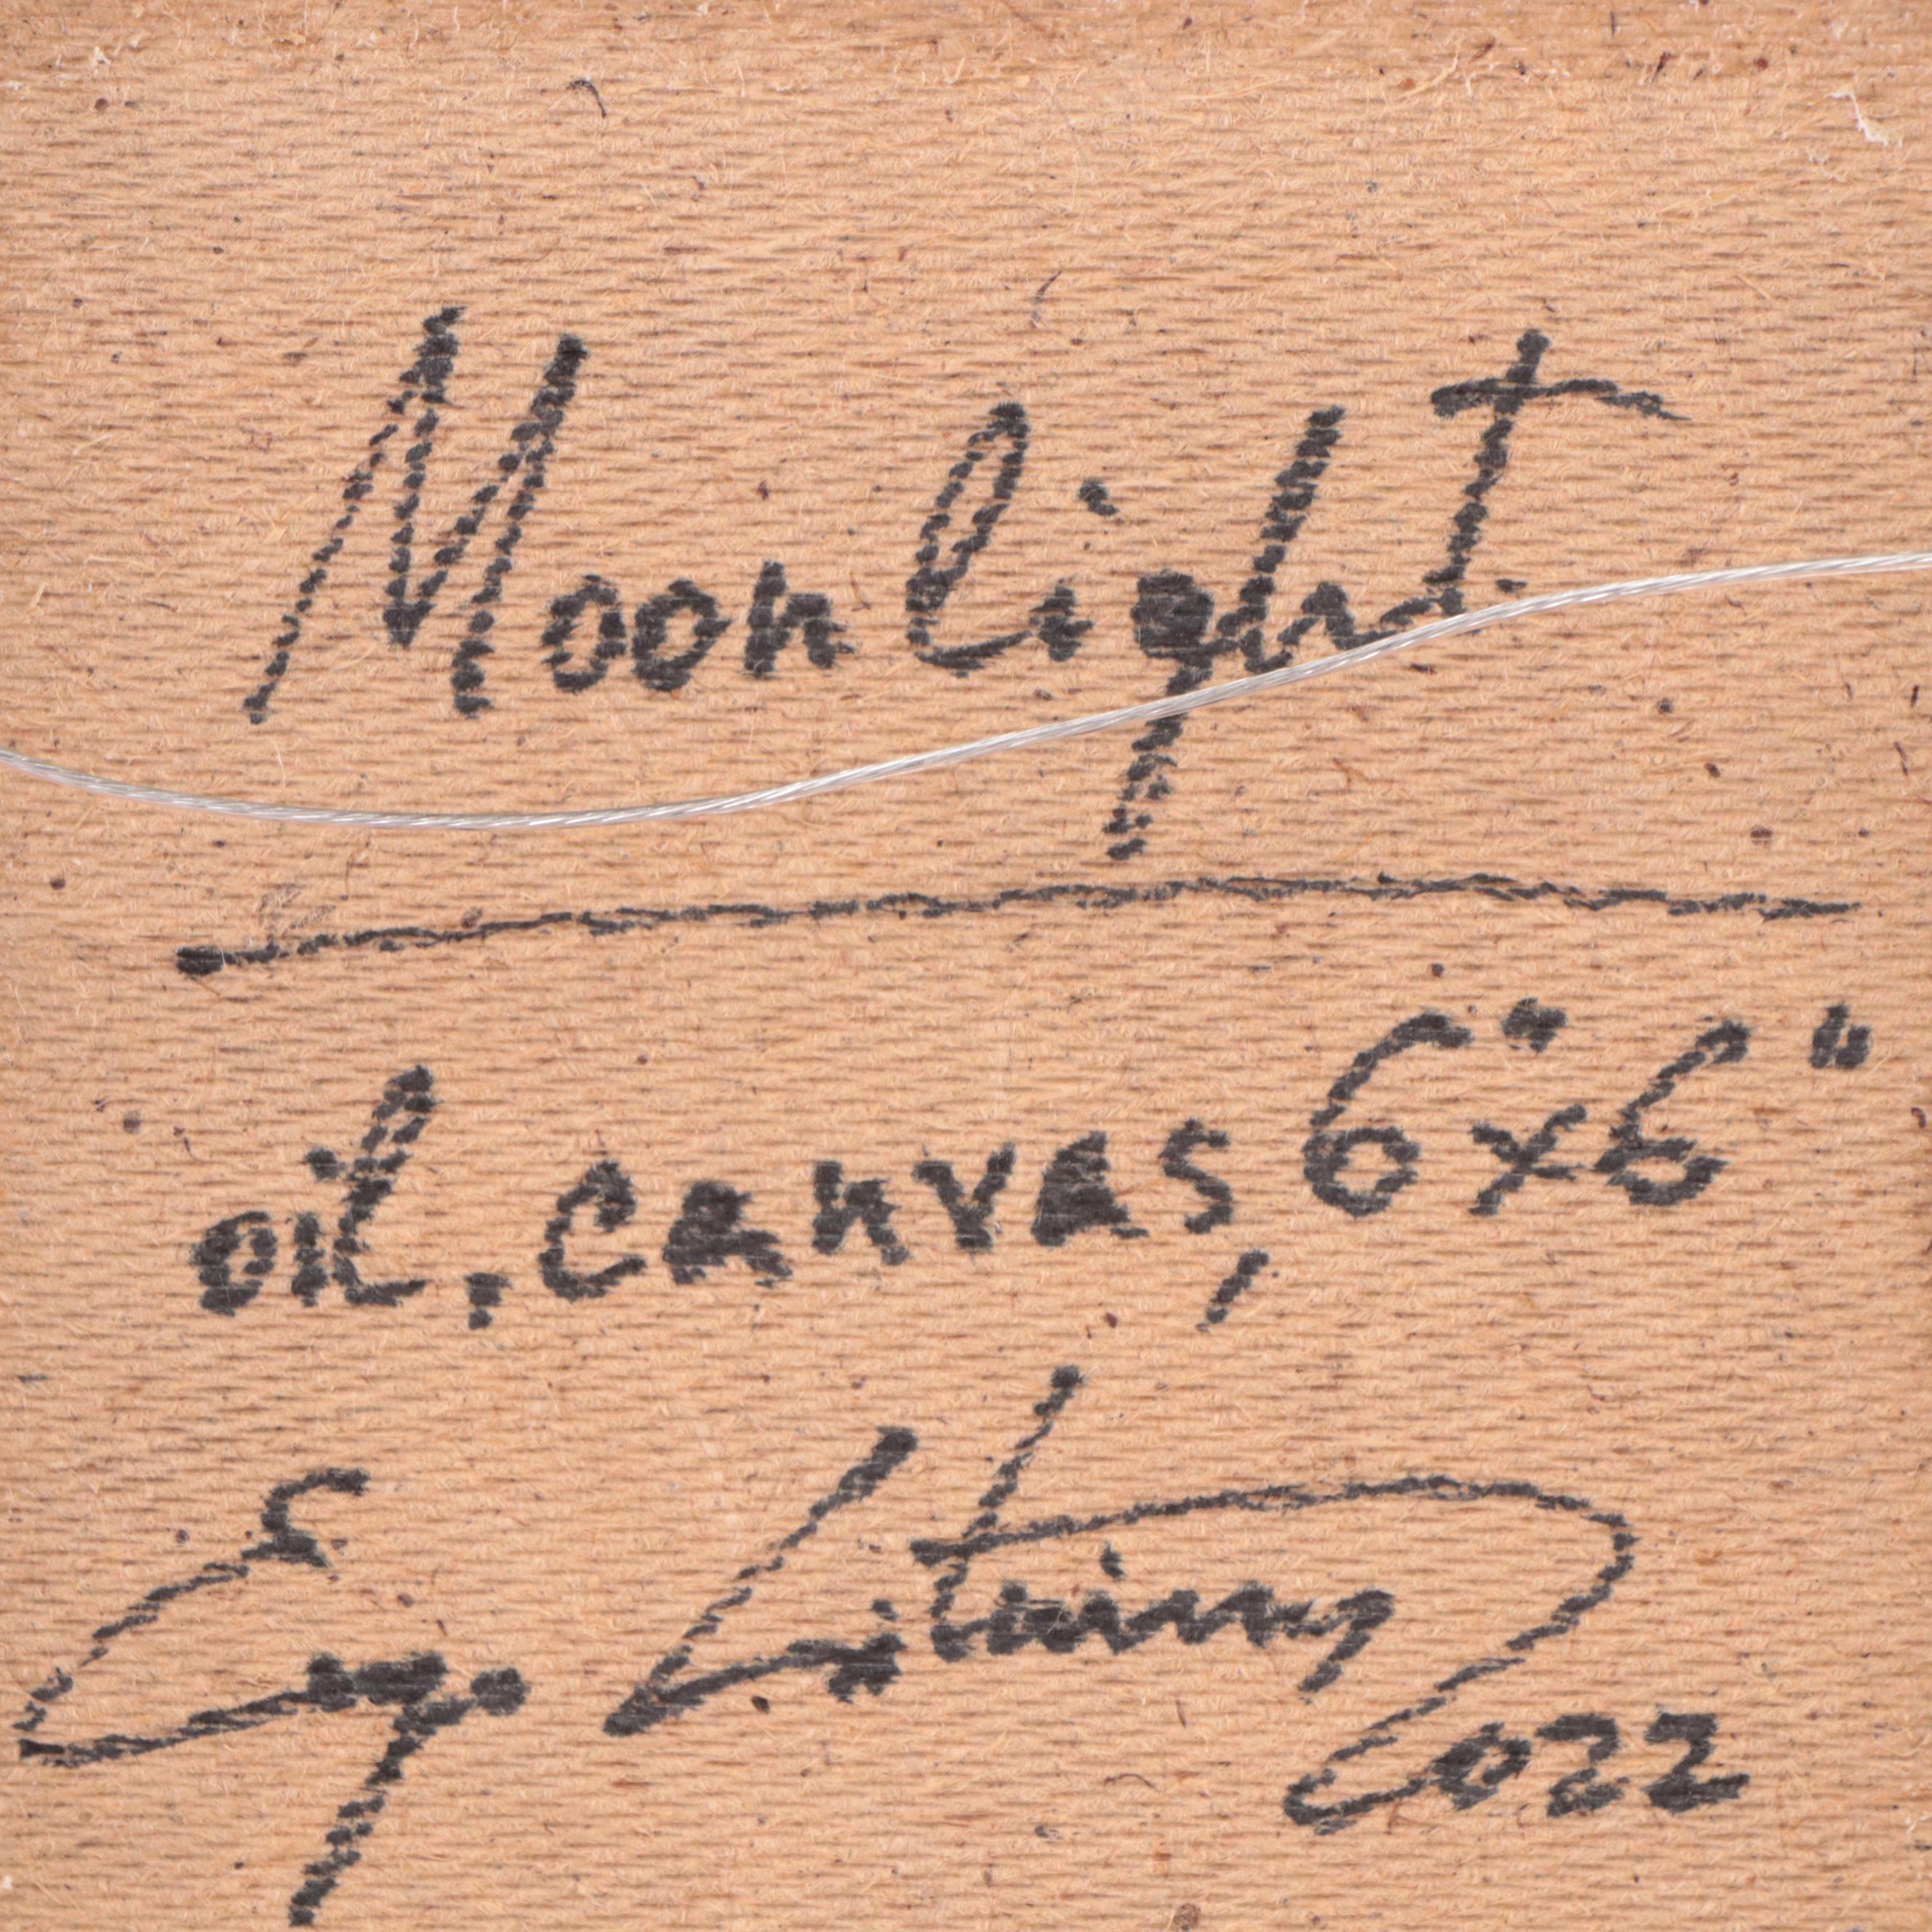 Moonlight
oil, canvas, 6"x6"
2022